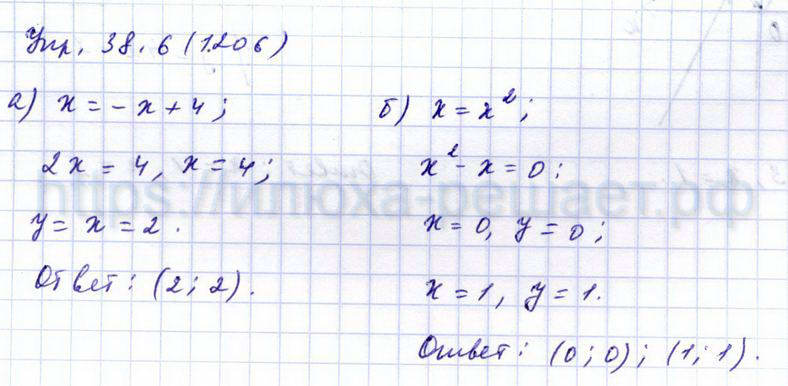 Упр. 38.6 (1206)
а) x = - x + 4;
2x = 4, x = 4;
y = x = 2.
Ответ: (2; 2).
б) x = x²;
x² - x = 0;
x = 0, y = 0;
x = 1, y = 1.
Ответ: (0; 0); (1; 1).
https://илюха-решает.рф